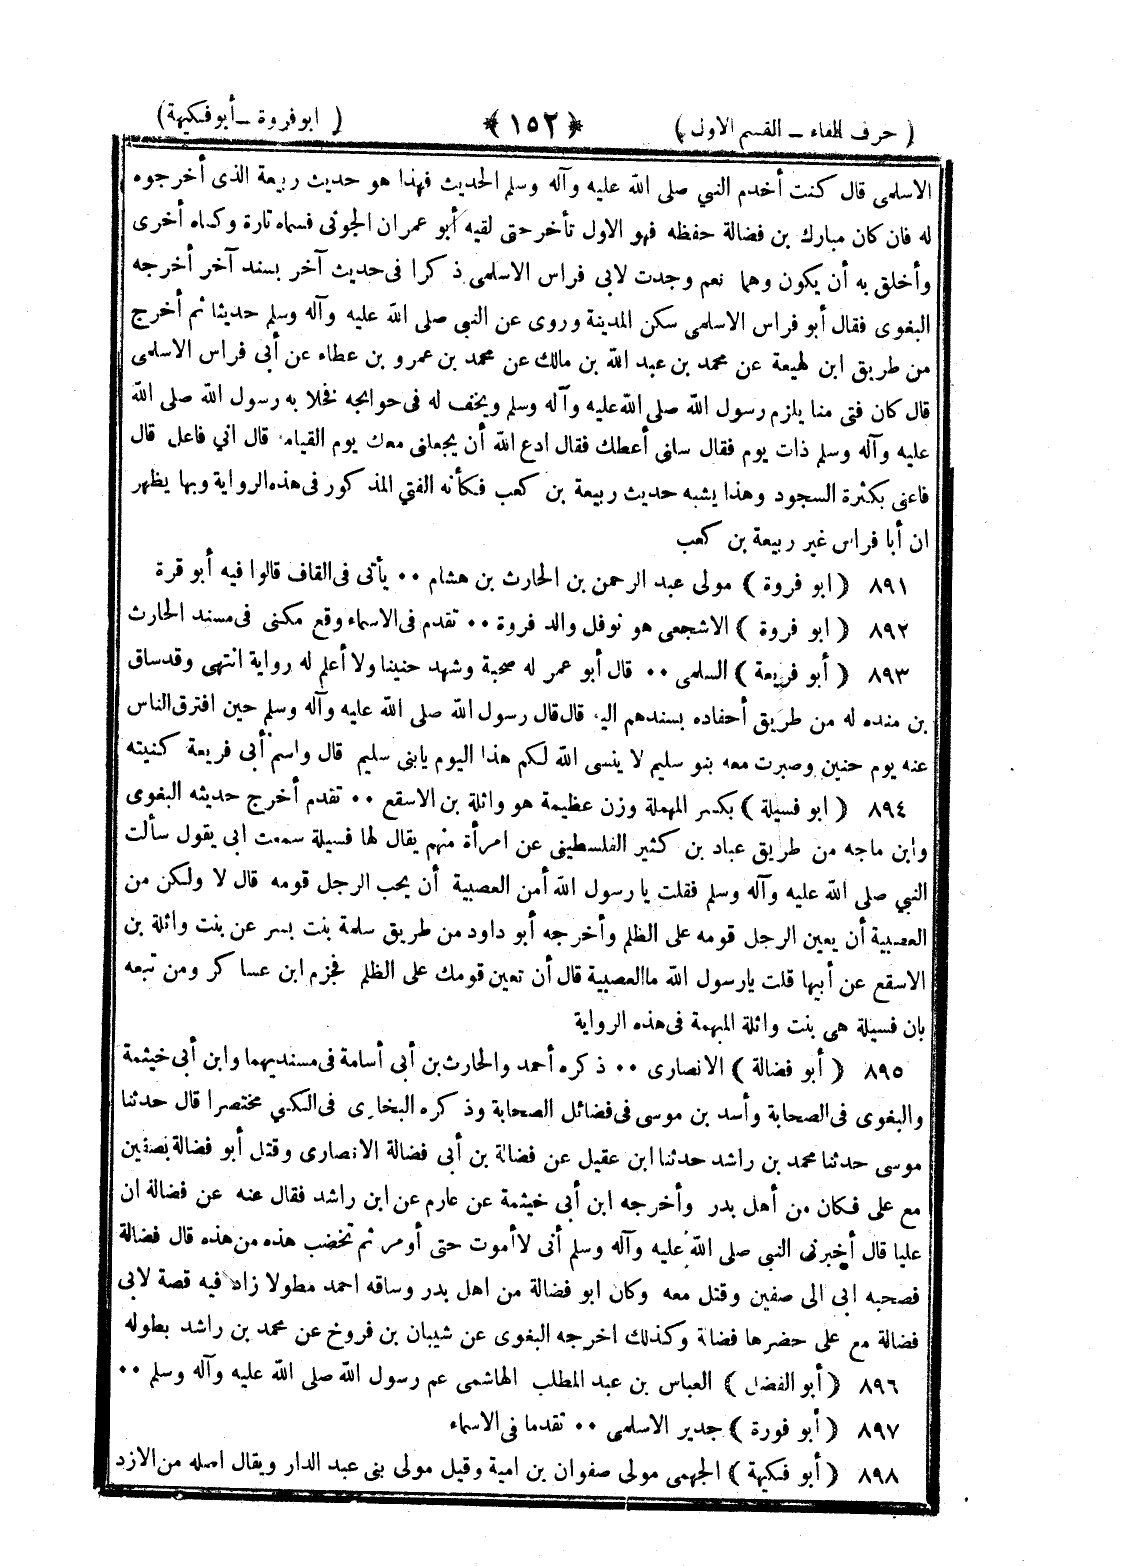 ( حرف الفاء – القسم الاول )
﴿ ١٥٢ ﴾
( ابو فروة – أبو فكيهة )
الاسلمى قال كنت أخدم النبي صلى الله عليه وآله وسلم الحديث فهذا هو حديث ربيعة الذى أخرجوه
له فان كان مبارك بن فضالة حفظه فهو الاول تأخر حتى لقيه أبو عمران الجونى فسماه تارة وكناه أخرى
وأخلق به أن يكون وهما نعم وجدت لابى فراس الاسلمى ذكرا فى حديث آخر بسند آخر أخرجه
البغوى فقال أبو فراس الاسلمى سكن المدينة وروى عن النبي صلى الله عليه وآله وسلم حديثا ثم أخرج
من طريق ابن لهيعة عن محمد بن عبد الله بن مالك عن محمد بن عمرو بن عطاء عن أبى فراس الاسلمى
قال كان فتى منا يلزم رسول الله صلى الله عليه وآله وسلم ويخف له فى حوائجه فخلا به رسول الله صلى الله
عليه وآله وسلم ذات يوم فقال سلنى أعطك فقال ادع الله أن يجعلنى معك يوم القيامة قال اني فاعل قال
فاعنى بكثرة السجود وهذا يشبه حديث ربيعة بن كعب فكأنه الفتي المذكور فى هذه الرواية وبها يظهر
ان أبا فراس غير ربيعة بن كعب
٨٩١ ( ابو فروة ) مولى عبد الرحمن بن الحارث بن هشام ٠٠ يأتى فى القاف قالوا فيه أبو قرة
٨٩٢ ( ابو فروة ) الاشجعى هو نوفل والد فروة ٠٠ تقدم فى الاسماء وقع مكنى فى مسند الحارث
٨٩٣ ( أبو فريعة ) السلمى ٠٠ قال أبو عمر له صحبة وشهد حنينا ولا أعلم له رواية انتهى وقد ساق
بن منده له من طريق أحفاده بسندهم اليه قال قال رسول الله صلى الله عليه وآله وسلم حين افترق الناس
عنه يوم حنين وصبرت معه بنو سليم لا ينسى الله لكم هذا اليوم يابنى سليم قال واسم أبى فريعة كنيته
٨٩٤ ( ابو فسيلة ) بكسر المهملة وزن عظيمة هو واثلة بن الاسقع ٠٠ تقدم أخرج حديثه البغوى
وابن ماجه من طريق عباد بن كثير الفلسطينى عن امرأة منهم يقال لها فسيلة سمعت ابى يقول سألت
النبي صلى الله عليه وآله وسلم فقلت يا رسول الله أمن العصبية أن يحب الرجل قومه قال لا ولكن من
العصبية أن يعين الرجل قومه على الظلم وأخرجه أبو داود من طريق سلمة بنت بسر عن بنت واثلة بن
الاسقع عن أبيها قلت يارسول الله ما العصبية قال أن تعين قومك على الظلم فجزم ابن عساكر ومن تبعه
بان فسيلة هى بنت واثلة المبهمة فى هذه الرواية
٨٩٥ ( أبو فضالة ) الانصارى ٠٠ ذكره أحمد والحارث بن أبى أسامة فى مسنديهما وابن أبى خيثمة
والبغوى فى الصحابة وأسد بن موسى فى فضائل الصحابة وذكره البخارى فى الكنى مختصرا قال حدثنا
موسى حدثنا محمد بن راشد حدثنا ابن عقيل عن فضالة بن أبى فضالة الانصارى وقتل أبو فضالة بصفين
مع على فكان من أهل بدر وأخرجه ابن أبي خيثمة عن عارم عن ابن راشد فقال عنه عن فضالة ان
عليا قال أخبرنى النبى صلى الله عليه وآله وسلم أنى لا أموت حتى أومر ثم تخضب هذه من هذه قال فضالة
فصحبه ابى الى صفين وقتل معه وكان ابو فضالة من اهل بدر وساقه احمد مطولا زاد فيه قصة لابى
فضالة مع على حضرها فضالة وكذلك اخرجه البغوى عن شيبان بن فروخ عن محمد بن راشد بطوله
٨٩٦ ( أبو الفضل ) العباس بن عبد المطلب الهاشمى عم رسول الله صلى الله عليه وآله وسلم ٠٠
٨٩٧ ( أبو فورة ) جدير الاسلمى ٠٠ تقدما فى الاسماء
٨٩٨ ( أبو فكيهة ) الجهمى مولى صفوان بن امية وقيل مولى بنى عبد الدار ويقال اصله من الازد